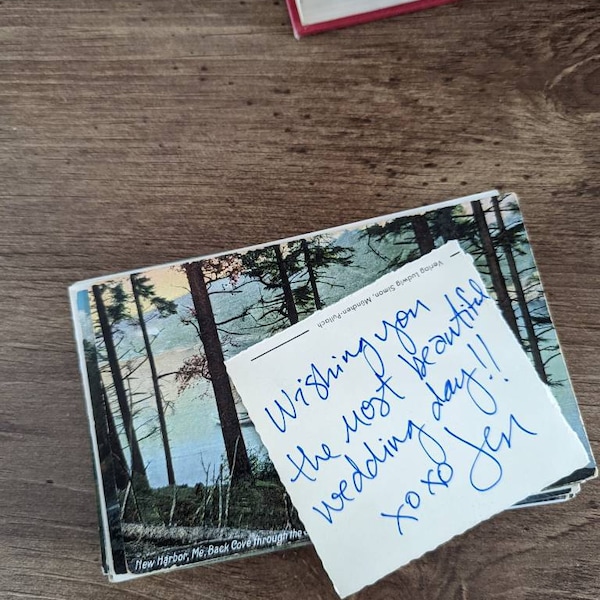 Verlag Ludwig Simon, München-Pullach
Wishing you
the most beautiful
wedding day!!
xoxo Jen
New Harbor, Me, Back Cove through the